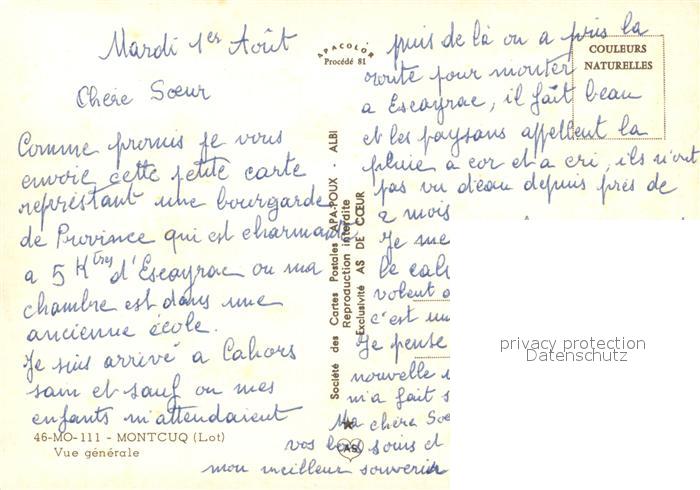 Mardi 1er Août
Chère Sœur
Comme promis je vous
envoie cette petite carte
représtant une bourgarde
de Province qui est charmante
a 5 Ktres d'Escayrac ou ma
chambre est dans une
ancienne école.
Je suis arrivé a Cahors
sain et sauf ou mes
enfants m'attendaient
46-MO-111 - MONTCUQ (Lot)
Vue générale
APACOLOR
Procédé 81
Société des Cartes Postales APA-POUX - ALBI
Reproduction interdite
Exclusivité AS DE CŒUR
CAS
COULEURS
NATURELLES
puis de là on a pris la
route pour monter
a Escayrac, il fait beau
et les paysans appellent la
pluie a cor et a cri, ils n'ont
pas vu d'eau depuis près de
2 mois
Je me
le cal
volent
c'est un
Je pense
nouvelle
m'a fait
Ma chère Sœ
vos bons soins et
mon meilleur souvenir
privacy protection
Datenschutz